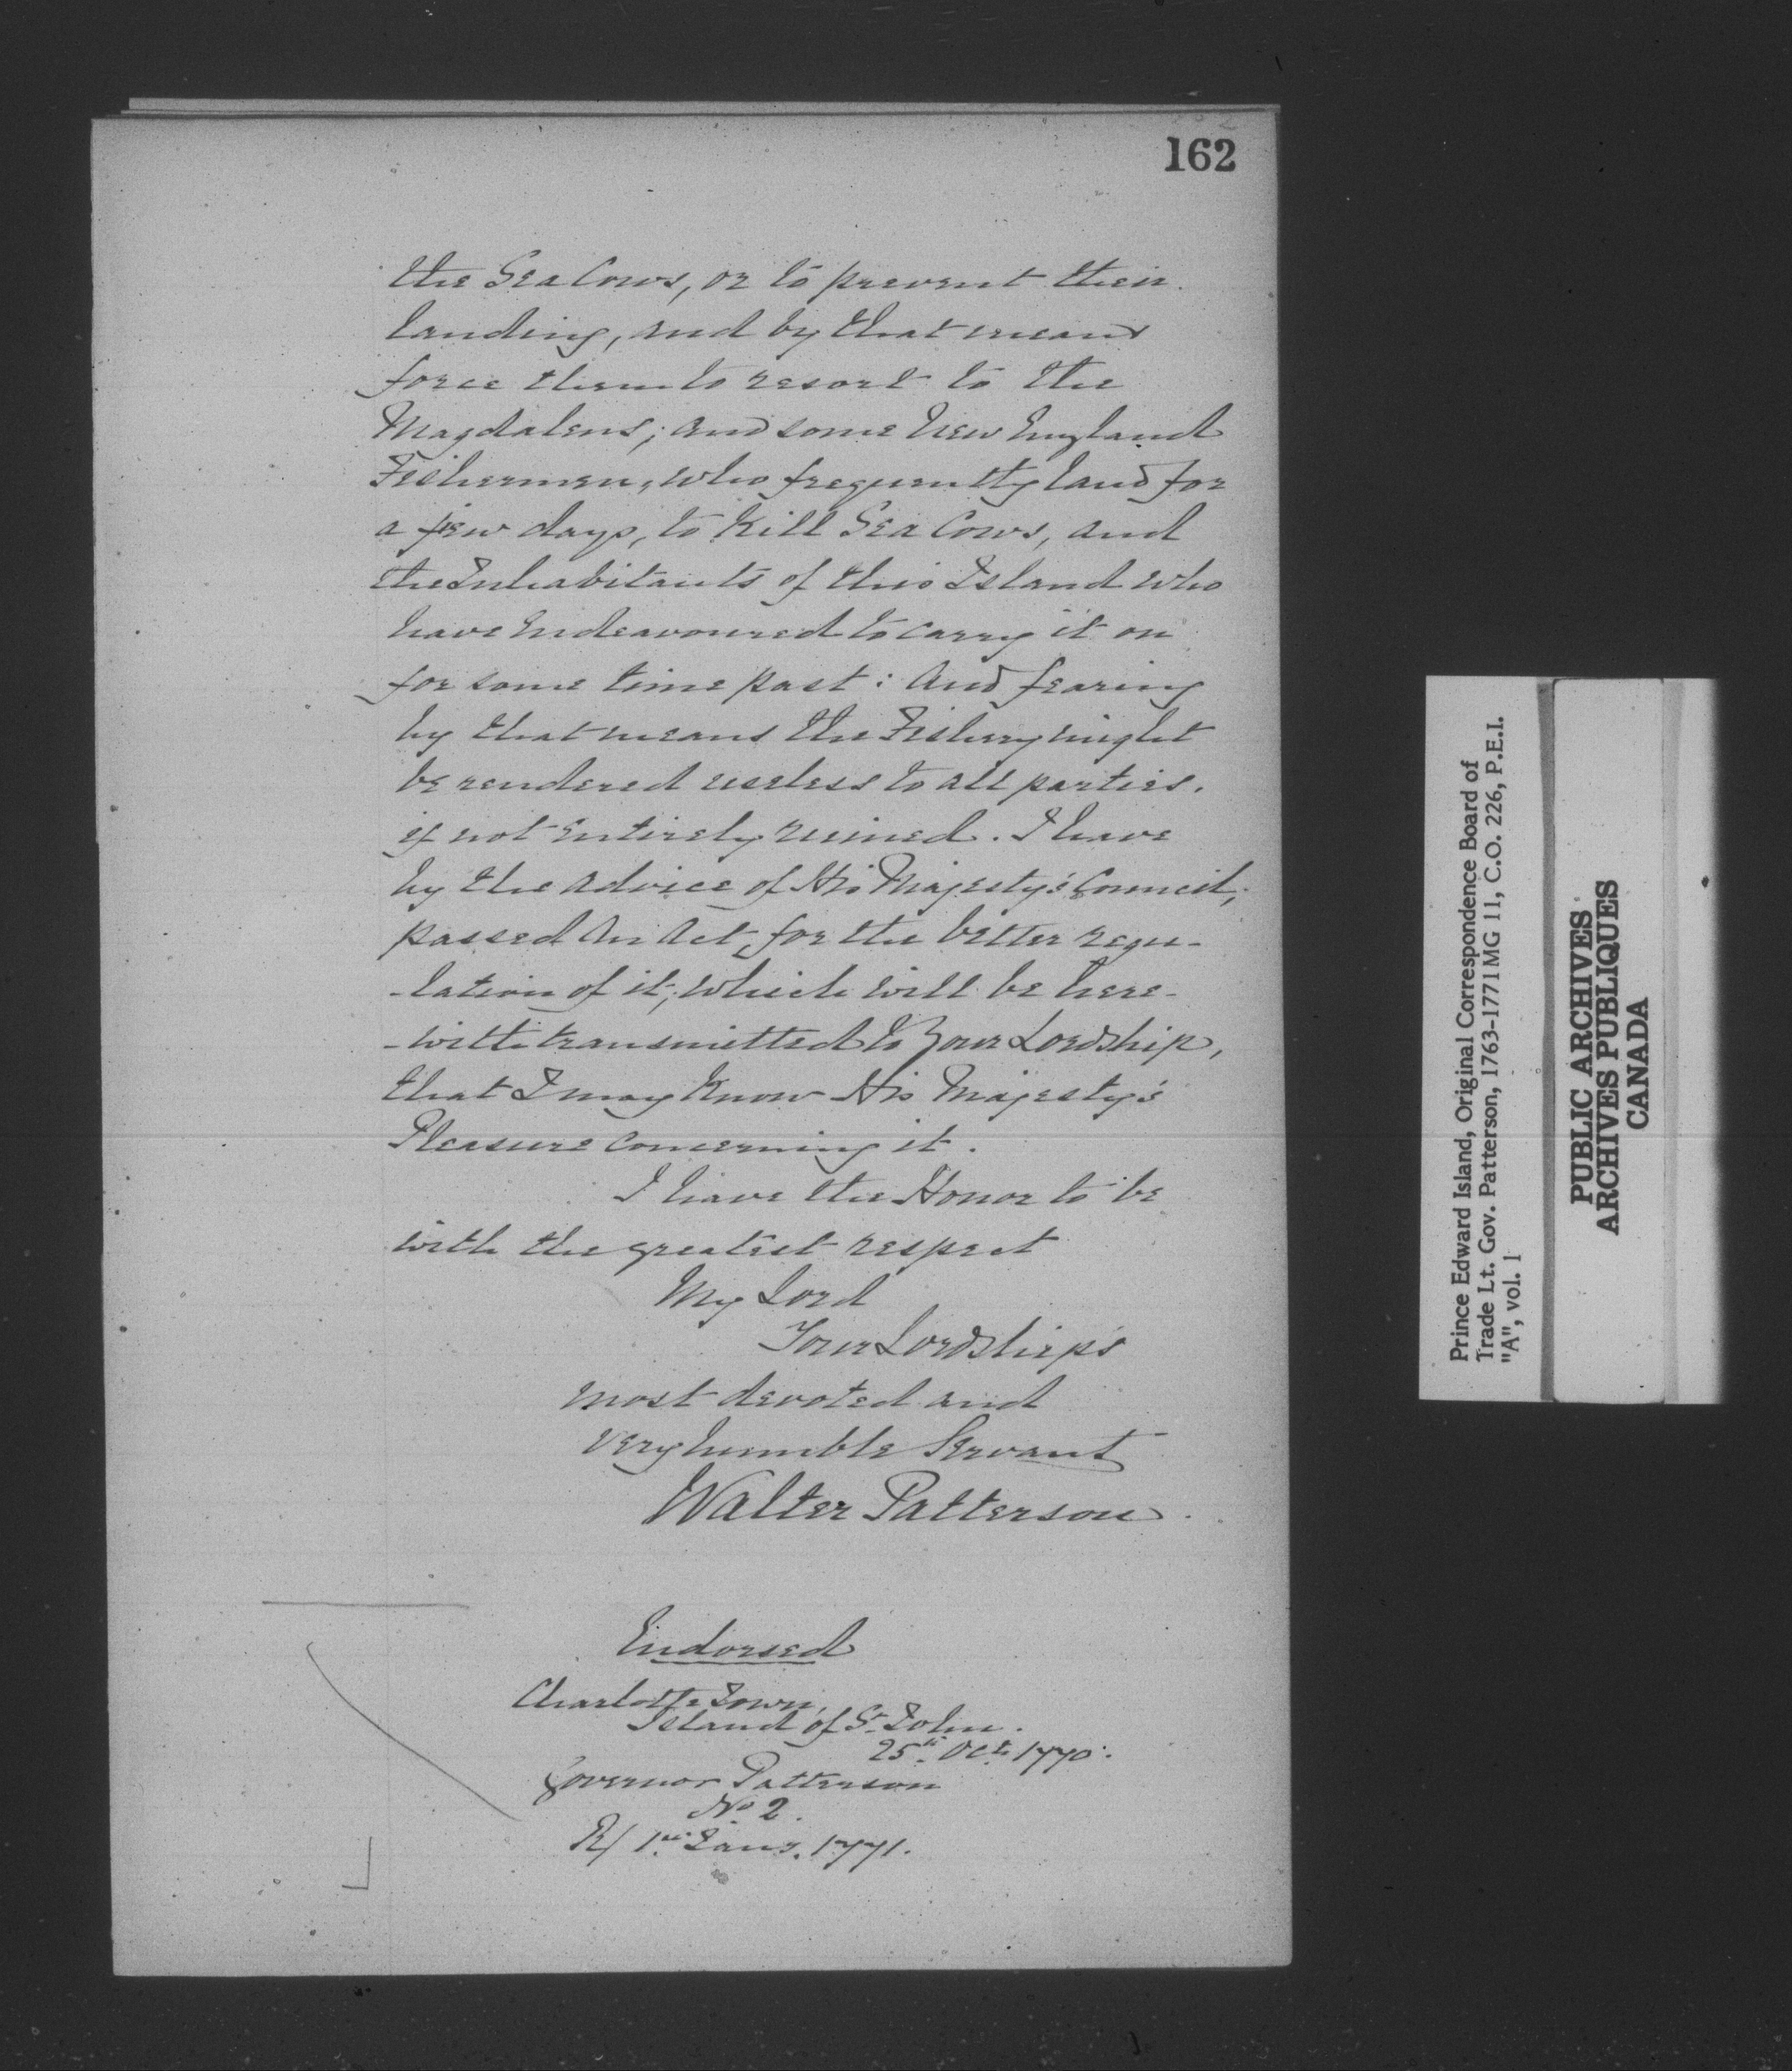 162
the Sea Cows, or to prevent their
landing, and by that means
force them to resort to the
Magdalens; and some New England
Fishermen, who frequently land for
a few days, to kill Sea Cows, and
the Inhabitants of this Island who
have endeavoured to carry it on
for some time past: And fearing
by that means the Fishery might
be rendered useless to all parties.
if not entirely ruined. I have
by the advice of His Majesty's Council,
passed an Act, for the better regu-
-lation of it; which will be here-
-with transmitted to Your Lordship,
that I may know His Majesty's
Pleasure concerning it.
I have the Honor to be
with the greatest respect
My Lord
Your Lordship's
most devoted and
very humble Servant
Walter Patterson.
Endorsed
Charlotte Town,
Island of St. John.
25th Oct. 1770.
Governor Patterson
No 2.
R/ 1st Jany. 1771.
Prince Edward Island, Original Correspondence Board of
Trade Lt. Gov. Patterson, 1763-1771 MG 11, C.O. 226, P.E.I.
"A", vol. 1
PUBLIC ARCHIVES
ARCHIVES PUBLIQUES
CANADA